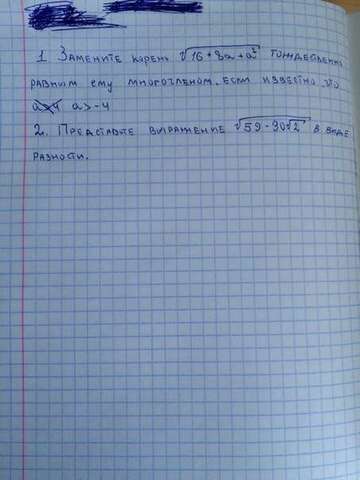 1 Замените корень √16+8a+a² тождественно
равным ему многочленом, если известно, что
a > -4
2. Представьте выражение √59-30√2 в виде
разности.